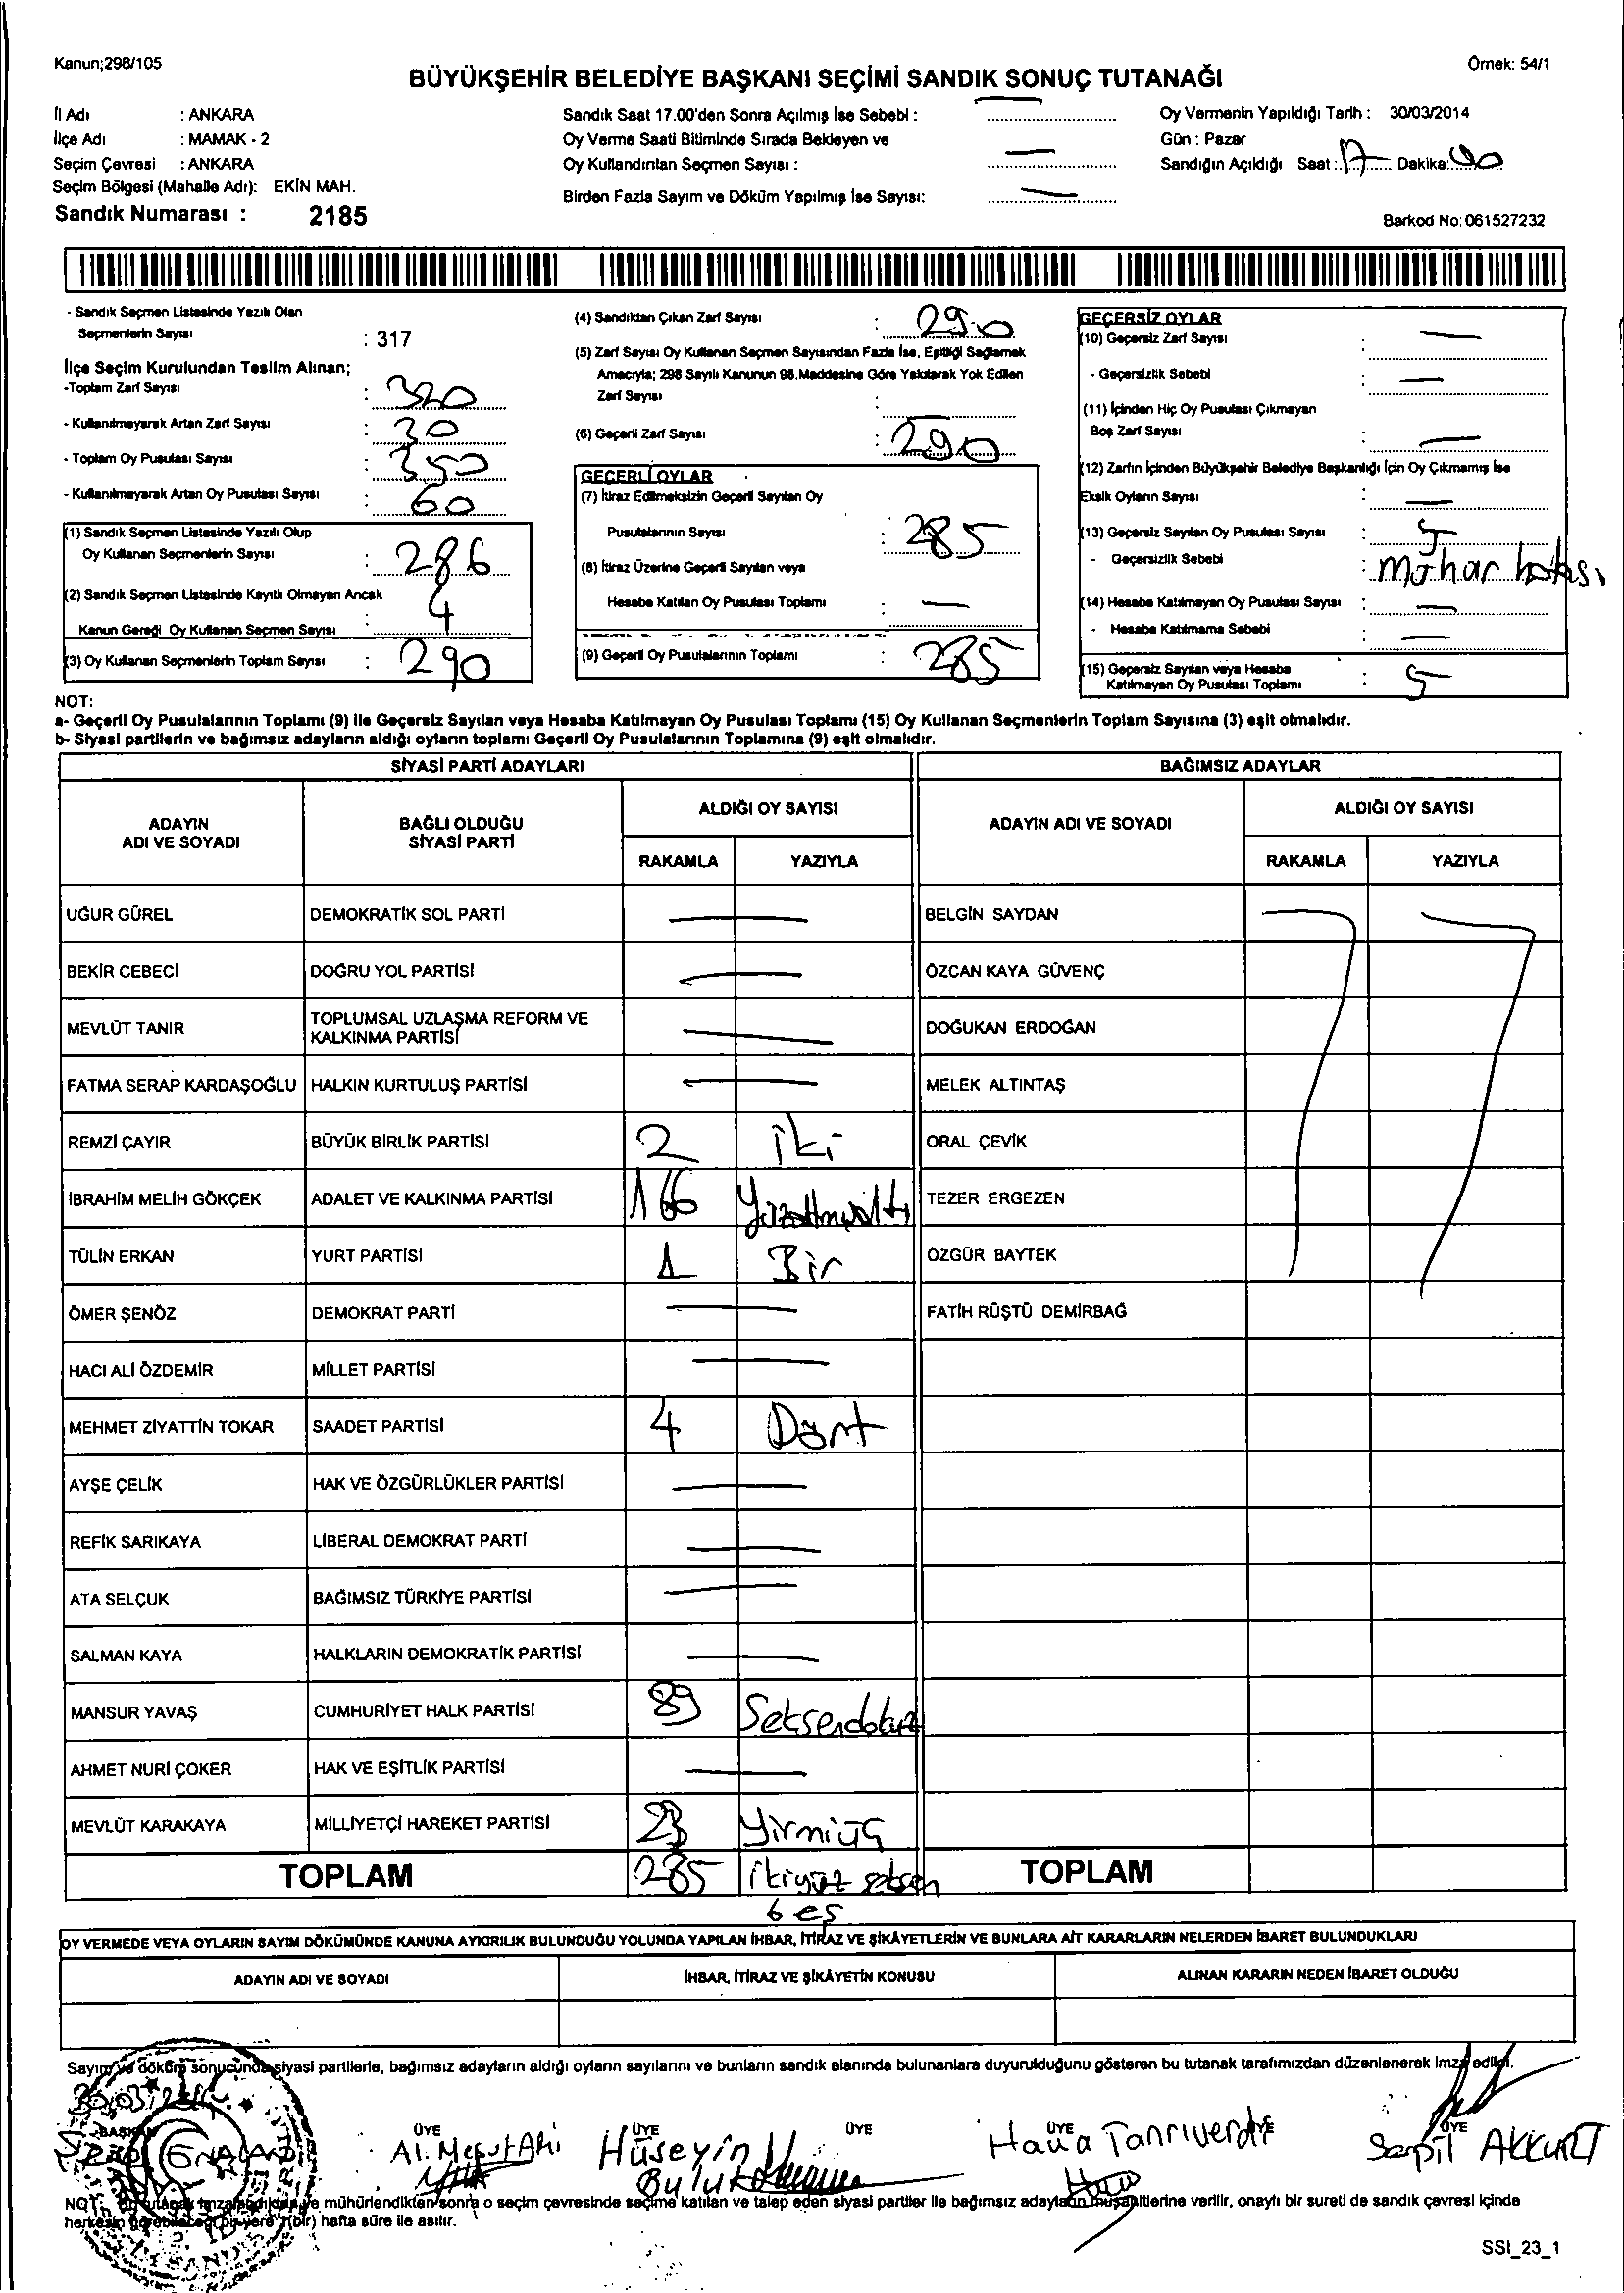 Kanun;298/105
Örnek: 54/1
BÜYÜKŞEHİR BELEDİYE BAŞKANI SEÇİMİ SANDIK SONUÇ TUTANAĞI
İl Adı : ANKARA
İlçe Adı : MAMAK - 2
Seçim Çevresi : ANKARA
Seçim Bölgesi (Mahalle Adı): EKİN MAH.
Sandık Numarası : 2185
Sandık Saat 17.00'den Sonra Açılmış İse Sebebi : —
Oy Verme Saati Bitiminde Sırada Bekleyen ve
Oy Kullandırılan Seçmen Sayısı : —
Birden Fazla Sayım ve Döküm Yapılmış İse Sayısı: —
Oy Vermenin Yapıldığı Tarih : 30/03/2014
Gün : Pazar
Sandığın Açıldığı Saat : 17 Dakika: 00
Barkod No: 061527232
- Sandık Seçmen Listesinde Yazılı Olan
Seçmenlerin Sayısı : 317
İlçe Seçim Kurulundan Teslim Alınan;
-Toplam Zarf Sayısı : 320
- Kullanılmayarak Artan Zarf Sayısı : 30
- Toplam Oy Pusulası Sayısı : 350
- Kullanılmayarak Artan Oy Pusulası Sayısı : 60
(1) Sandık Seçmen Listesinde Yazılı Olup
Oy Kullanan Seçmenlerin Sayısı : 286
(2) Sandık Seçmen Listesinde Kayıtlı Olmayan Ancak
Kanun Gereği Oy Kullanan Seçmen Sayısı : 4
(3) Oy Kullanan Seçmenlerin Toplam Sayısı : 290
(4) Sandıktan Çıkan Zarf Sayısı : 290
(5) Zarf Sayısı Oy Kullanan Seçmen Sayısından Fazla İse, Eşitliği Sağlamak
Amacıyla; 298 Sayılı Kanunun 98.Maddesine Göre Yakılarak Yok Edilen
Zarf Sayısı : —
(6) Geçerli Zarf Sayısı : 290
GEÇERLİ OYLAR
(7) İtiraz Edilmeksizin Geçerli Sayılan Oy
Pusulalarının Sayısı : 285
(8) İtiraz Üzerine Geçerli Sayılan veya
Hesaba Katılan Oy Pusulası Toplamı : —
(9) Geçerli Oy Pusulalarının Toplamı : 285
GEÇERSİZ OYLAR
(10) Geçersiz Zarf Sayısı : —
- Geçersizlik Sebebi : —
(11) İçinden Hiç Oy Pusulası Çıkmayan
Boş Zarf Sayısı : —
(12) Zarfın İçinden Büyükşehir Belediye Başkanlığı İçin Oy Çıkmamış İse
Eksik Oyların Sayısı : —
(13) Geçersiz Sayılan Oy Pusulası Sayısı : 5
- Geçersizlik Sebebi : Mühür hatası
(14) Hesaba Katılmayan Oy Pusulası Sayısı : —
- Hesaba Katılmama Sebebi : —
(15) Geçersiz Sayılan veya Hesaba
Katılmayan Oy Pusulası Toplamı : 5
NOT:
a- Geçerli Oy Pusulalarının Toplamı (9) ile Geçersiz Sayılan veya Hesaba Katılmayan Oy Pusulası Toplamı (15) Oy Kullanan Seçmenlerin Toplam Sayısına (3) eşit olmalıdır.
b- Siyasi partilerin ve bağımsız adayların aldığı oyların toplamı Geçerli Oy Pusulalarının Toplamına (9) eşit olmalıdır.
SİYASİ PARTİ ADAYLARI BAĞIMSIZ ADAYLAR
ADAYIN
ADI VE SOYADI
BAĞLI OLDUĞU
SİYASİ PARTİ
ALDIĞI OY SAYISI
RAKAMLA YAZIYLA
ADAYIN ADI VE SOYADI
ALDIĞI OY SAYISI
RAKAMLA YAZIYLA
UĞUR GÜREL DEMOKRATİK SOL PARTİ — BELGİN SAYDAN
BEKİR CEBECİ DOĞRU YOL PARTİSİ — ÖZCAN KAYA GÜVENÇ
MEVLÜT TANIR TOPLUMSAL UZLAŞMA REFORM VE
KALKINMA PARTİSİ — DOĞUKAN ERDOĞAN
FATMA SERAP KARDAŞOĞLU HALKIN KURTULUŞ PARTİSİ — MELEK ALTINTAŞ
REMZİ ÇAYIR BÜYÜK BİRLİK PARTİSİ 2 iki ORAL ÇEVİK
İBRAHİM MELİH GÖKÇEK ADALET VE KALKINMA PARTİSİ 166 Yüzatmışaltı TEZER ERGEZEN
TÜLİN ERKAN YURT PARTİSİ 1 Bir ÖZGÜR BAYTEK
ÖMER ŞENÖZ DEMOKRAT PARTİ — FATİH RÜŞTÜ DEMİRBAĞ
HACI ALİ ÖZDEMİR MİLLET PARTİSİ —
MEHMET ZİYATTİN TOKAR SAADET PARTİSİ 4 Dört
AYŞE ÇELİK HAK VE ÖZGÜRLÜKLER PARTİSİ —
REFİK SARIKAYA LİBERAL DEMOKRAT PARTİ —
ATA SELÇUK BAĞIMSIZ TÜRKİYE PARTİSİ —
SALMAN KAYA HALKLARIN DEMOKRATİK PARTİSİ —
MANSUR YAVAŞ CUMHURİYET HALK PARTİSİ 89 Seksendokuz
AHMET NURİ ÇOKER HAK VE EŞİTLİK PARTİSİ —
MEVLÜT KARAKAYA MİLLİYETÇİ HAREKET PARTİSİ 23 Yirmiüç
TOPLAM 285 ikiyüz seksen TOPLAM
beş
OY VERMEDE VEYA OYLARIN SAYIM DÖKÜMÜNDE KANUNA AYKIRILIK BULUNDUĞU YOLUNDA YAPILAN İHBAR, İTİRAZ VE ŞİKÂYETLERİN VE BUNLARA AİT KARARLARIN NELERDEN İBARET BULUNDUKLARI
ADAYIN ADI VE SOYADI İHBAR, İTİRAZ VE ŞİKÂYETİN KONUSU ALINAN KARARIN NEDEN İBARET OLDUĞU
Sayım ve döküm sonucunda siyasi partilerle, bağımsız adayların aldığı oyların sayılarını ve bunların sandık alanında bulunanlara duyurulduğunu gösteren bu tutanak tarafımızdan düzenlenerek imza edildi.
BAŞKAN ÜYE ÜYE ÜYE ÜYE ÜYE ÜYE
Hüseyin Hava Tanrıverdi Serpil AKKURT
Buluk
NOT: Bu tutanak imzalandıktan ve mühürlendikten sonra o seçim çevresinde seçime katılan ve talep eden siyasi partiler ile bağımsız adayların müşahitlerine verilir, onaylı bir sureti de sandık çevresi içinde
herkesin görebileceği bir yere 1(bir) hafta süre ile asılır.
SSI_23_1